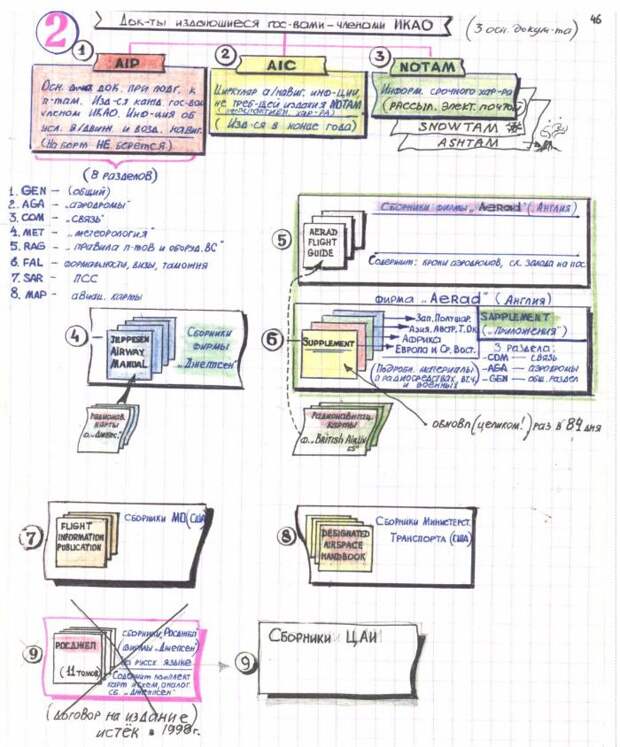 46
2
Док-ты издающиеся гос-вами-членами ИКАО
(3 осн. докум-та)
1
AIP
Осн. док. при подг. к
п-там. Изд-ся кажд. гос-вом
членом ИКАО. Инф-мия об
усл. в/движ. и возд. навиг.
(На борт НЕ берется)
2
AIC
Циркуляр а/навиг. инф-ции,
не треб-щей издания NOTAM
(Изд-ся в конце года)
3
NOTAM
Информ. срочного хар-ра
(рассыл. элект. почтой)
SNOWTAM
ASHTAM
(8 разделов)
1. GEN – (общий)
2. AGA – „аэродромы"
3. COM – „связь"
4. MET – „метеорология"
5. RAG – „правила п-тов и оборуд. ВС"
6. FAL – формальности, визы, таможня
7. SAR – ПСС
8. MAP – авиац. карты
4
JEPPESEN
AIRWAY
MANUAL
Сборники
фирмы
„Джепсен"
Радионав.
карты
ф. „Джепс."
5
AERAD
FLIGHT
GUIDE
Сборники фирмы „Aerad" (Англия)
Содержит: кроки аэродромов, сх. захода на пос.
фирма „Aerad" (Англия)
6
SUPPLEMENT
Зап. Полушар.
Азия, Австр., Т. Ок.
Африка
Европа и Ср. Вост.
SAPPLEMENT
(„приложения")
3 раздела:
-COM – связь
-AGA – аэродромы
-GEN – общ. раздел
(Подробн. материалы
о радиосредствах,
и военных
обновл (целиком!) раз в 84 дня
Радионавигац.
карты
ф. „British Airways"
7
FLIGHT
INFORMATION
PUBLICATION
Сборники МО (США)
8
DESIGNATED
AIRSPACE
HANDBOOK
Сборники Министерст.
Транспорта (США)
9
РОСДЖЕП
(11 томов)
сборники „Росджеп"
(фирмы „Джепсен")
на русск. языке
Содержит комплект
карт и схем, аналог.
сб. „Джеппсен"
(договор на издание)
истёк в 1998г.
9
Сборники ЦАИ